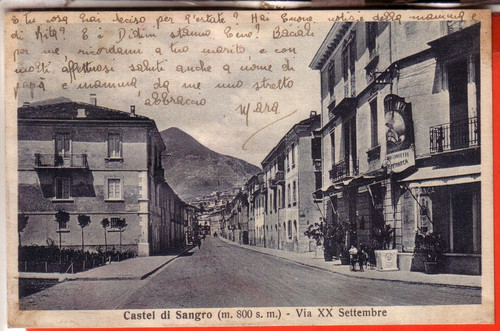 E tu cosa hai deciso per l'estate? Hai buone notizie della mamma e
di Rita? E i Didim stanno bene? Baciali
per me ricordami a tuo marito e con
molti affettuosi saluti anche a nome di
papà e mamma da me uno stretto
abbraccio
Mara
Castel di Sangro (m. 800 s. m.) - Via XX Settembre